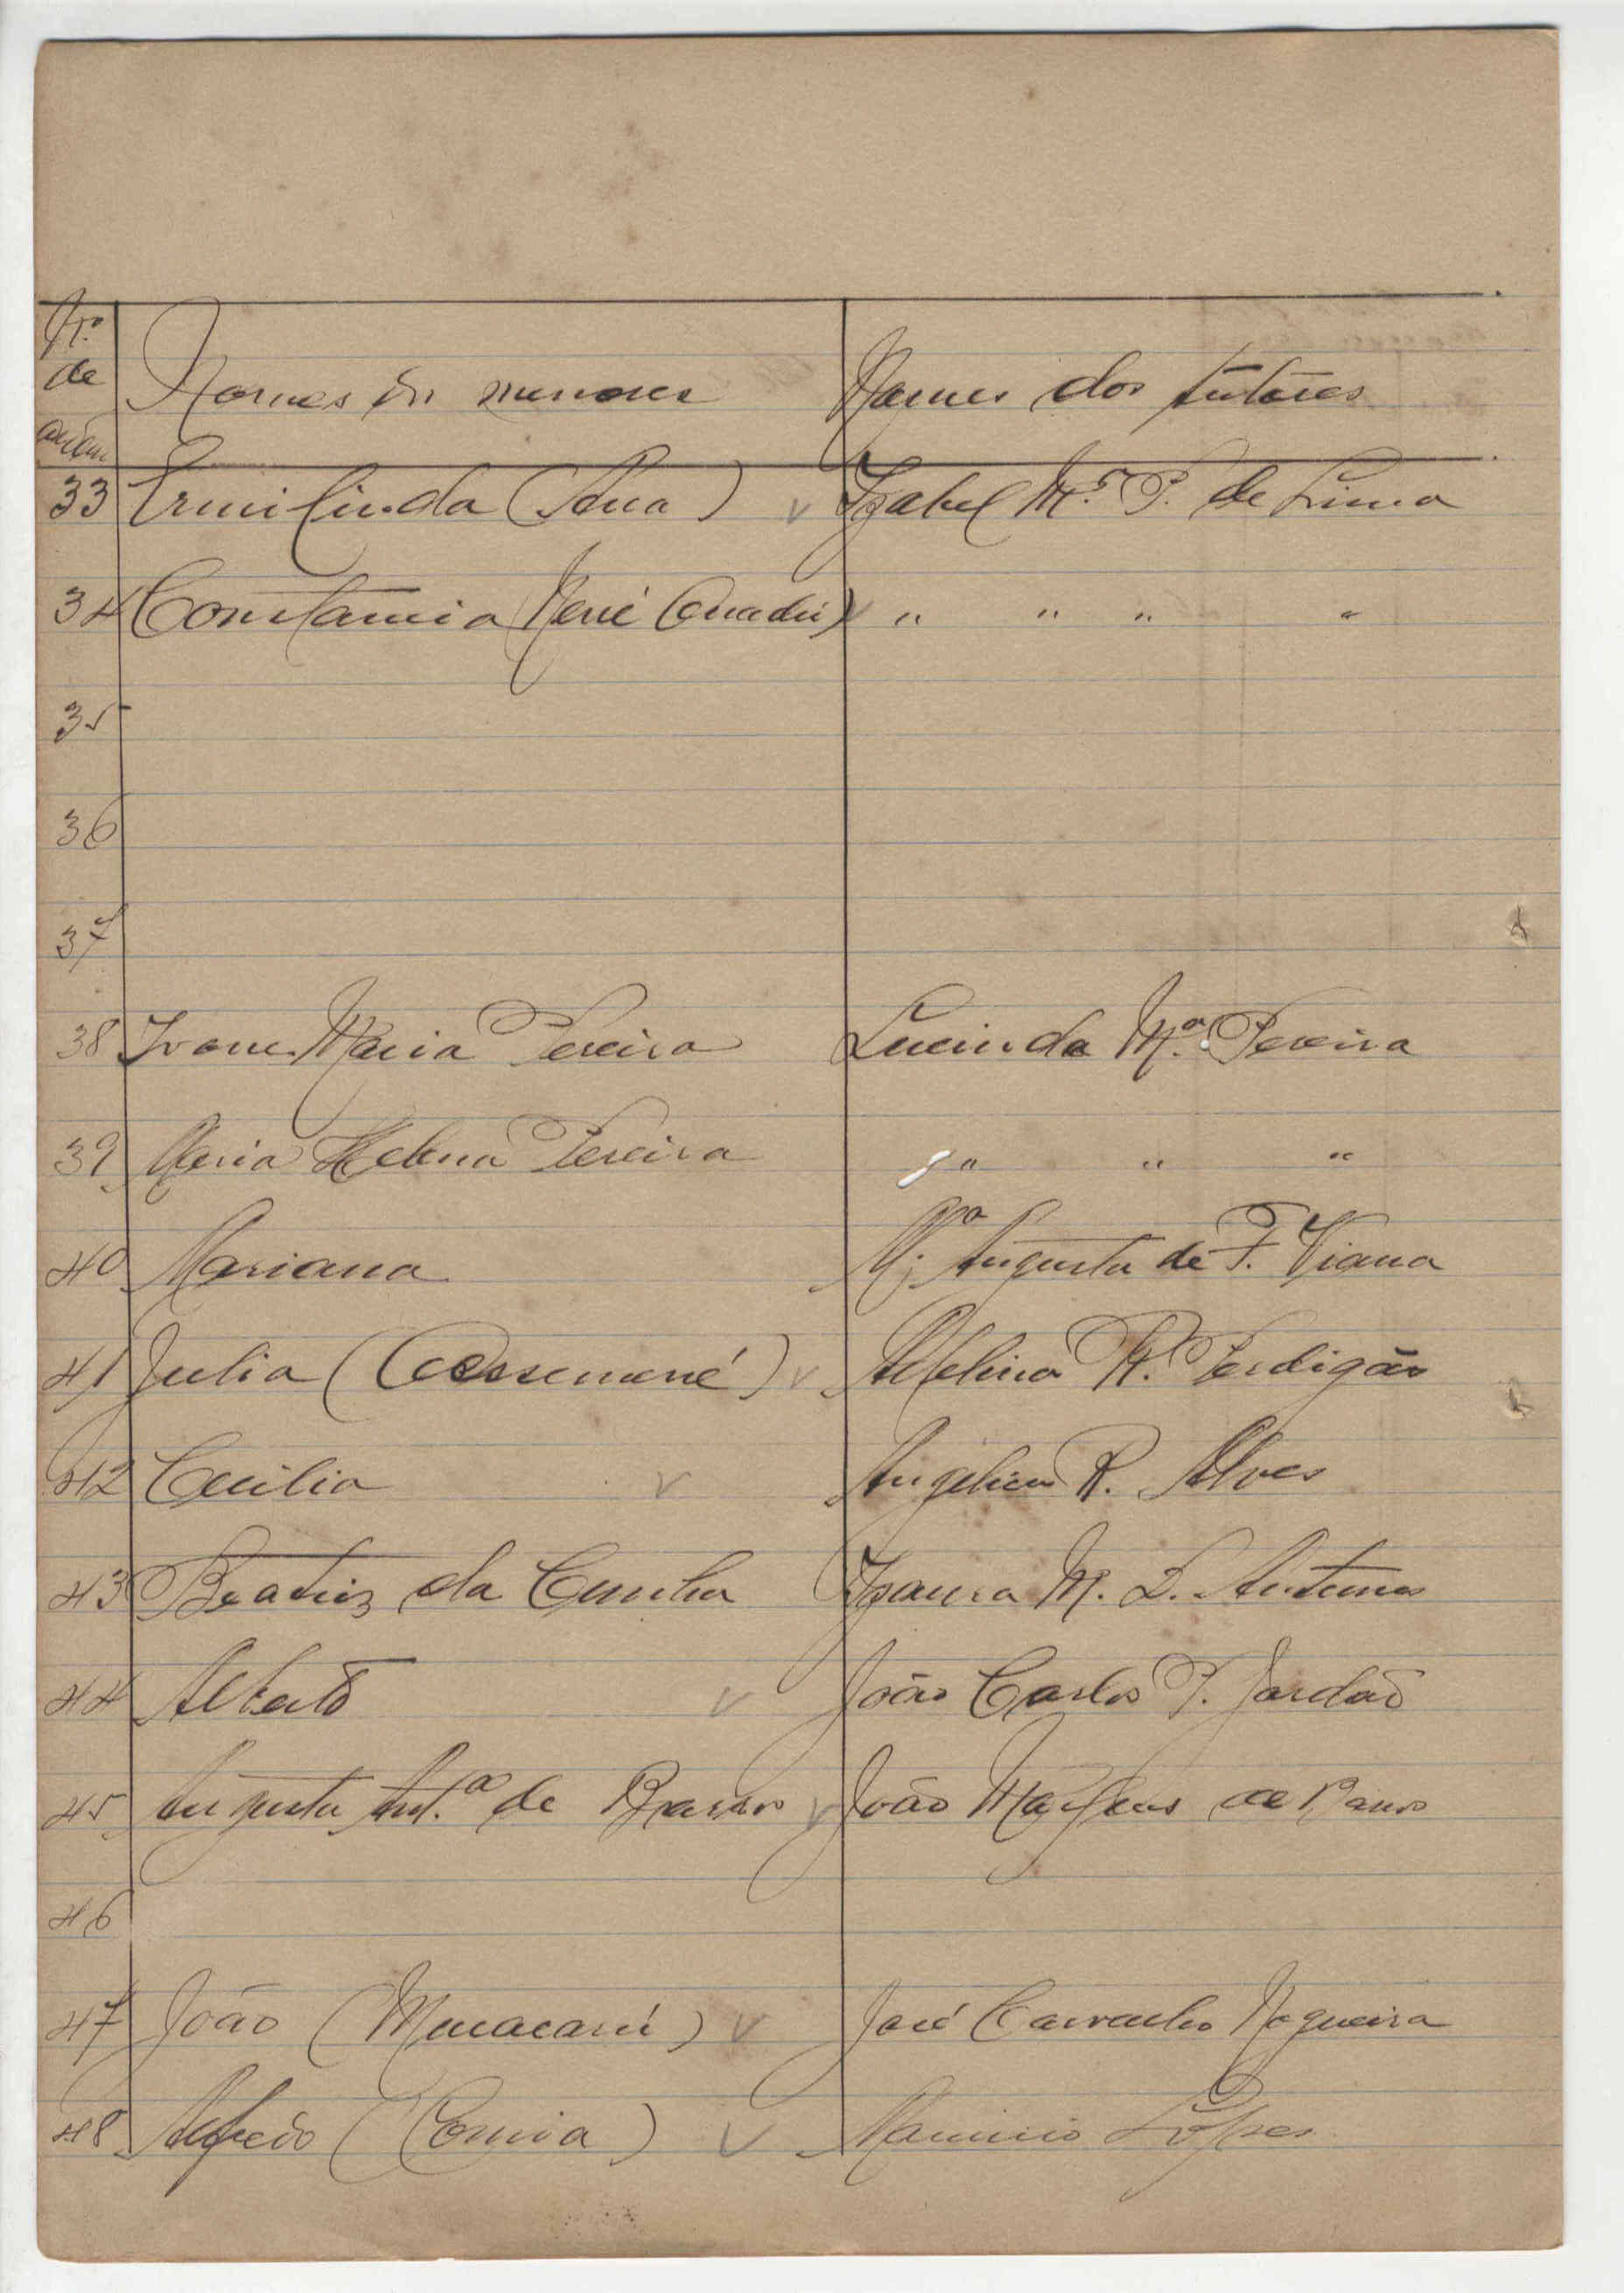 Nº de ordem Nomes dos menores Nomes dos tutores
33 Ermilinda (Ana) v Izabel M.ª P. de Lima
34 Constancia René v " " " "
35
36
37
38 Ivone Maria Pereira Lucinda M.ª Pereira
39 Maria Helena Pereira " " "
40 Mariana M.ª Augusta de F. Viana
41 Julia v Adelina R. Perdigão
42 Cecilia v Angelica R. Alves
43 Beatriz da Cunha Izaura M. L. Antunes
44 Alberto v João Carlos P. Jardão
45 Augusta Ant.ª de Barros v João Martins de Barros
46
47 João (Mucacané) v José Carvalho Nogueira
48 Alfredo (Comia) v Mauricio Lopes